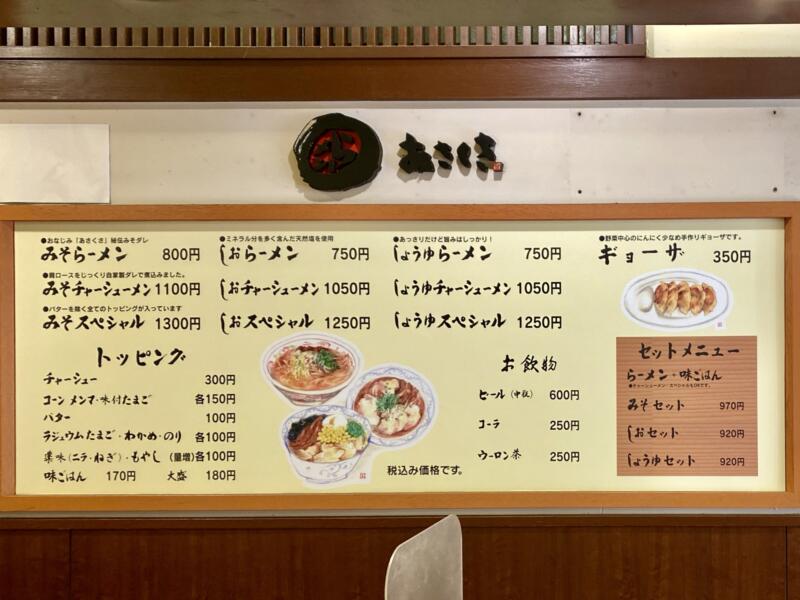 あさくさ
●おなじみ「あさくさ」秘伝みそダレ
みそらーメン 800円
●肩ロースをじっくり自家製ダレで煮込みました。
みそチャーシューメン 1100円
●バターを除く全てのトッピングが入っています
みそスペシャル 1300円
●ミネラル分を多く含んだ天然塩を使用
しおらーメン 750円
しおチャーシューメン 1050円
しおスペシャル 1250円
●あっさりだけど旨みはしっかり!
しょうゆらーメン 750円
しょうゆチャーシューメン 1050円
しょうゆスペシャル 1250円
●野菜中心のにんにく少なめ手作りギョーザです。
ギョーザ 350円
トッピング
チャーシュー 300円
コーン メンマ・味付たまご 各150円
バター 100円
ラジュウムたまご・わかめ・のり 各100円
薬味(ニラ・ねぎ)・もやし (量増)各100円
味ごはん 170円 大盛 180円
お飲物
ビール(中瓶) 600円
コーラ 250円
ウーロン茶 250円
税込み価格です。
セットメニュー
らーメン+味ごはん
●チャーシューメン・スペシャルもOKです。
みそセット 970円
しおセット 920円
しょうゆセット 920円